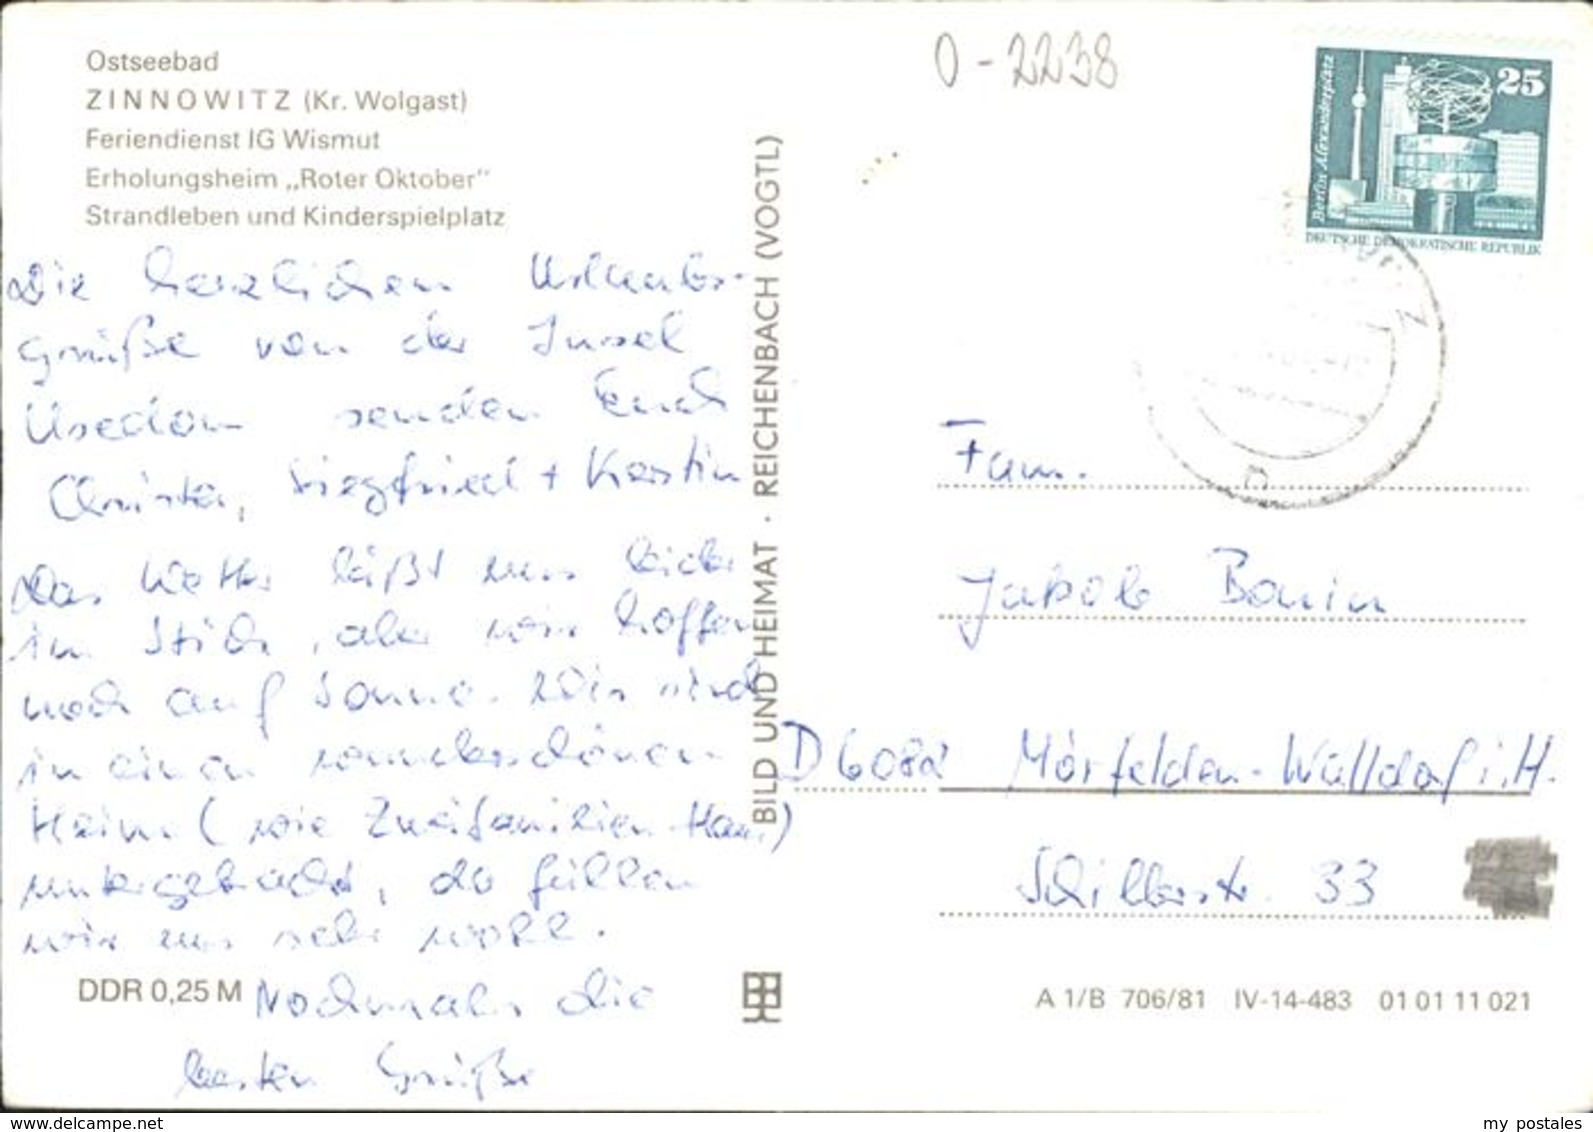 O-2238
Ostseebad
ZINNOWITZ (Kr. Wolgast)
Feriendienst IG Wismut
Erholungsheim „Roter Oktober"
Strandleben und Kinderspielplatz
25
Berlin Alexanderplatz
DEUTSCHE DEMOKRATISCHE REPUBLIK
Die herzlichen Urlaubs-
grüße von der Insel
Usedom senden Euch
Christa, Siegfried + Kerstin
Das Wetter läßt uns leider
im Stich, aber wir hoffen
noch auf Sonne. Wir sind
in einem wunderschönen
Heim (wie Zweifamilien-Haus)
untergebracht, da fühlen
wir uns sehr wohl.
Nochmals die
besten Grüße
BILD UND HEIMAT · REICHENBACH (VOGTL)
Fam.
Jakob Bonin
D 6082 Mörfelden-Walldorf i. H.
Schillerstr. 33
DDR 0,25 M
A 1/B 706/81 IV-14-483 01 01 11 021
www.delcampe.net
my postales